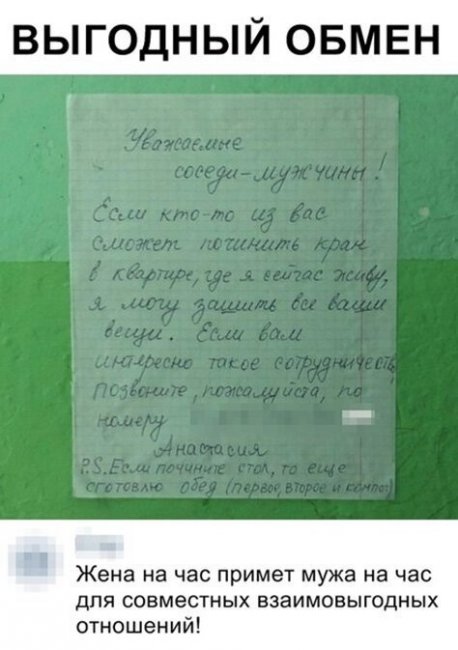 ВЫГОДНЫЙ ОБМЕН
Уважаемые
соседи-мужчины!
Если кто-то из вас
сможет починить кран
в квартире, где я сейчас живу,
я могу зашить все ваши
вещи. Если вам
интересно такое сотрудничество,
позвоните, пожалуйста, по
номеру
Анастасия
P.S. Если почините стол, то еще
сготовлю обед (первое, второе и компот)
Жена на час примет мужа на час
для совместных взаимовыгодных
отношений!